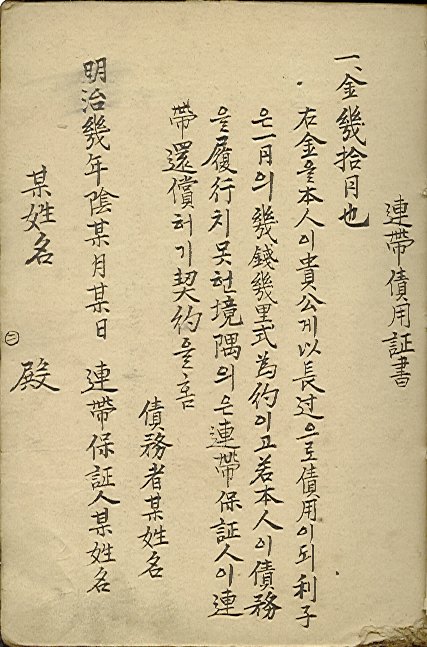 連帶債用証書
一、金幾拾円也
右金을本人이貴公게以長过으로債用이되利子
은一月의幾錢幾里式為約이고若本人이債務
을履行치못헌境隅의은連帶保証人이連
帶還償허기契約을홈
債務者某姓名
明治幾年陰某月某日 連帶保証人某姓名
某姓名 殿